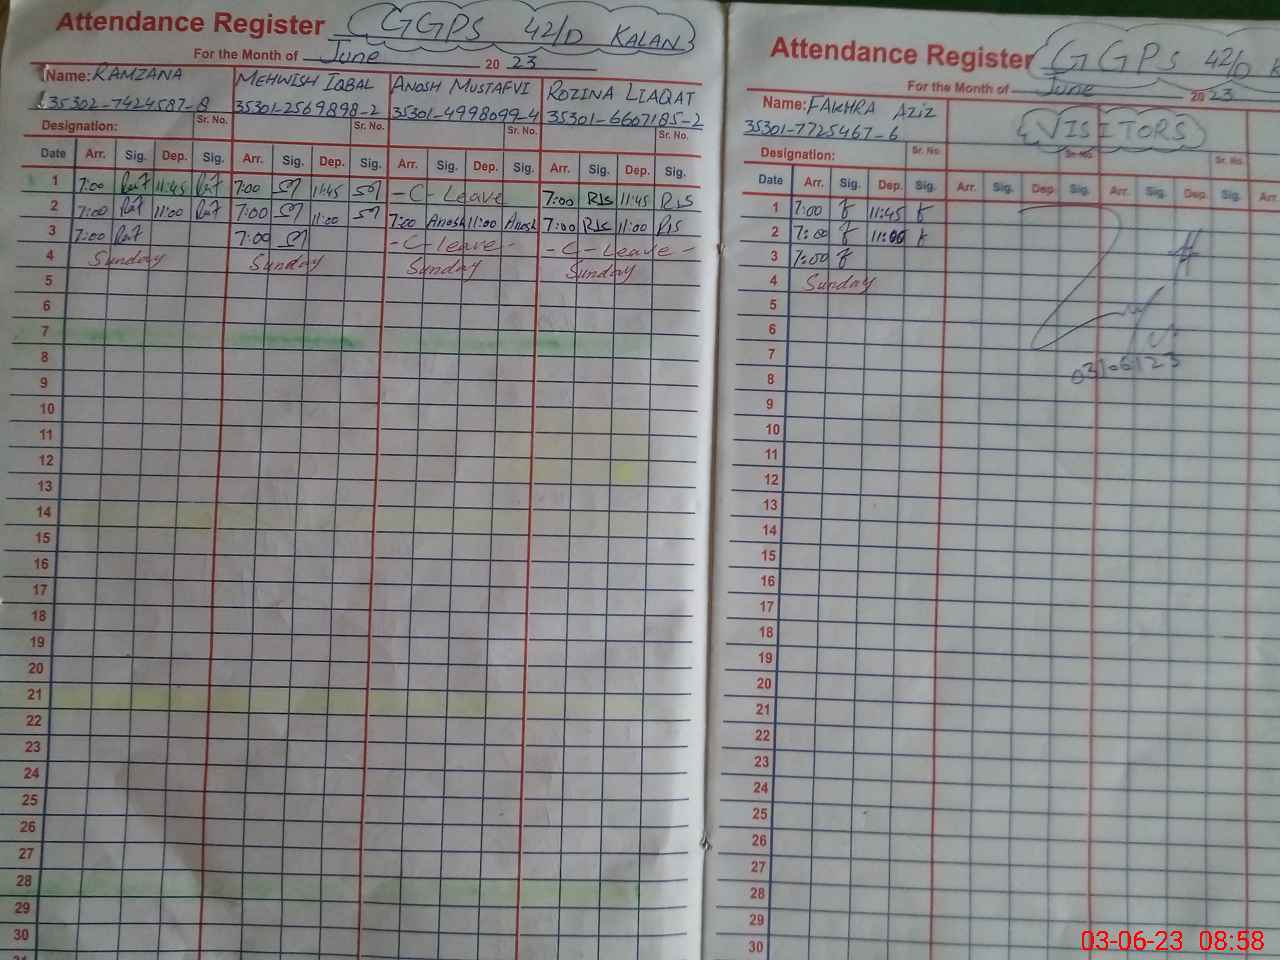 Attendance Register GGPS 42/D KALAN
For the Month of June 2023
Name: RAMZANA MEHWISH IQBAL ANOSH MUSTAFVI ROZINA LIAQAT
35302-7424587-8 35301-2569898-2 35301-4998099-4 35301-6607185-2
Designation: Sr. No. Sr. No. Sr. No. Sr. No.
Date Arr. Sig. Dep. Sig. Arr. Sig. Dep. Sig. Arr. Sig. Dep. Sig. Arr. Sig. Dep. Sig.
1 7:00 11:45 7:00 11:45 -C-Leave 7:00 RJS 11:45 RJS
2 7:00 11:00 7:00 11:00 7:00 Anosh 11:00 Anosh 7:00 RJS 11:00 RJS
3 7:00 7:00 -C-leave- -C-Leave-
4 Sunday Sunday Sunday Sunday
5
6
7
8
9
10
11
12
13
14
15
16
17
18
19
20
21
22
23
24
25
26
27
28
29
30
31
Attendance Register GGPS 42/D K
For the Month of June 2023
Name: FAKHRA AZIZ VISITORS
35301-7725467-6
Designation: Sr. No. Sr. No. Sr. No.
Date Arr. Sig. Dep. Sig. Arr. Sig. Dep. Sig. Arr. Sig. Dep. Sig. Arr.
1 7:00 11:45
2 7:00 11:00
3 7:00
4 Sunday
5
6
7
03/06/23
8
9
10
11
12
13
14
15
16
17
18
19
20
21
22
23
24
25
26
27
28
29
30
03-06-23 08:58